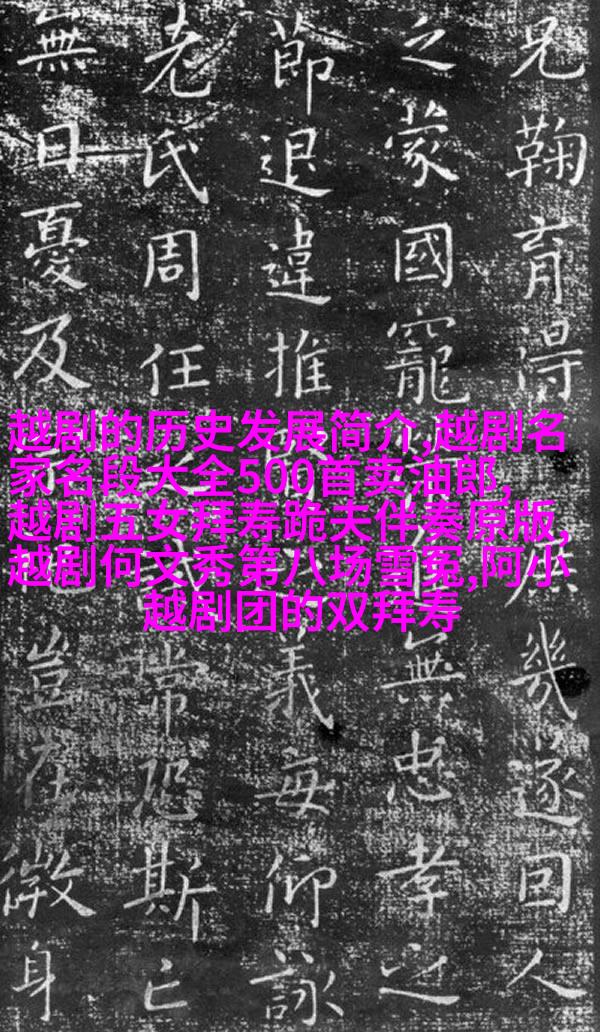 越剧的历史发展简介,越剧名
家名段大全500首卖油郎,
越剧五女拜寿跪夫伴奏原版,
越剧何文秀第八场雪冤,阿小
越剧团的双拜寿
兄鞠育得庶幾遂回人
乏蒙國寵無忠孝之
節退違推義每仰詠
老氏周任常恐斯亡
無日憂及豈在微身